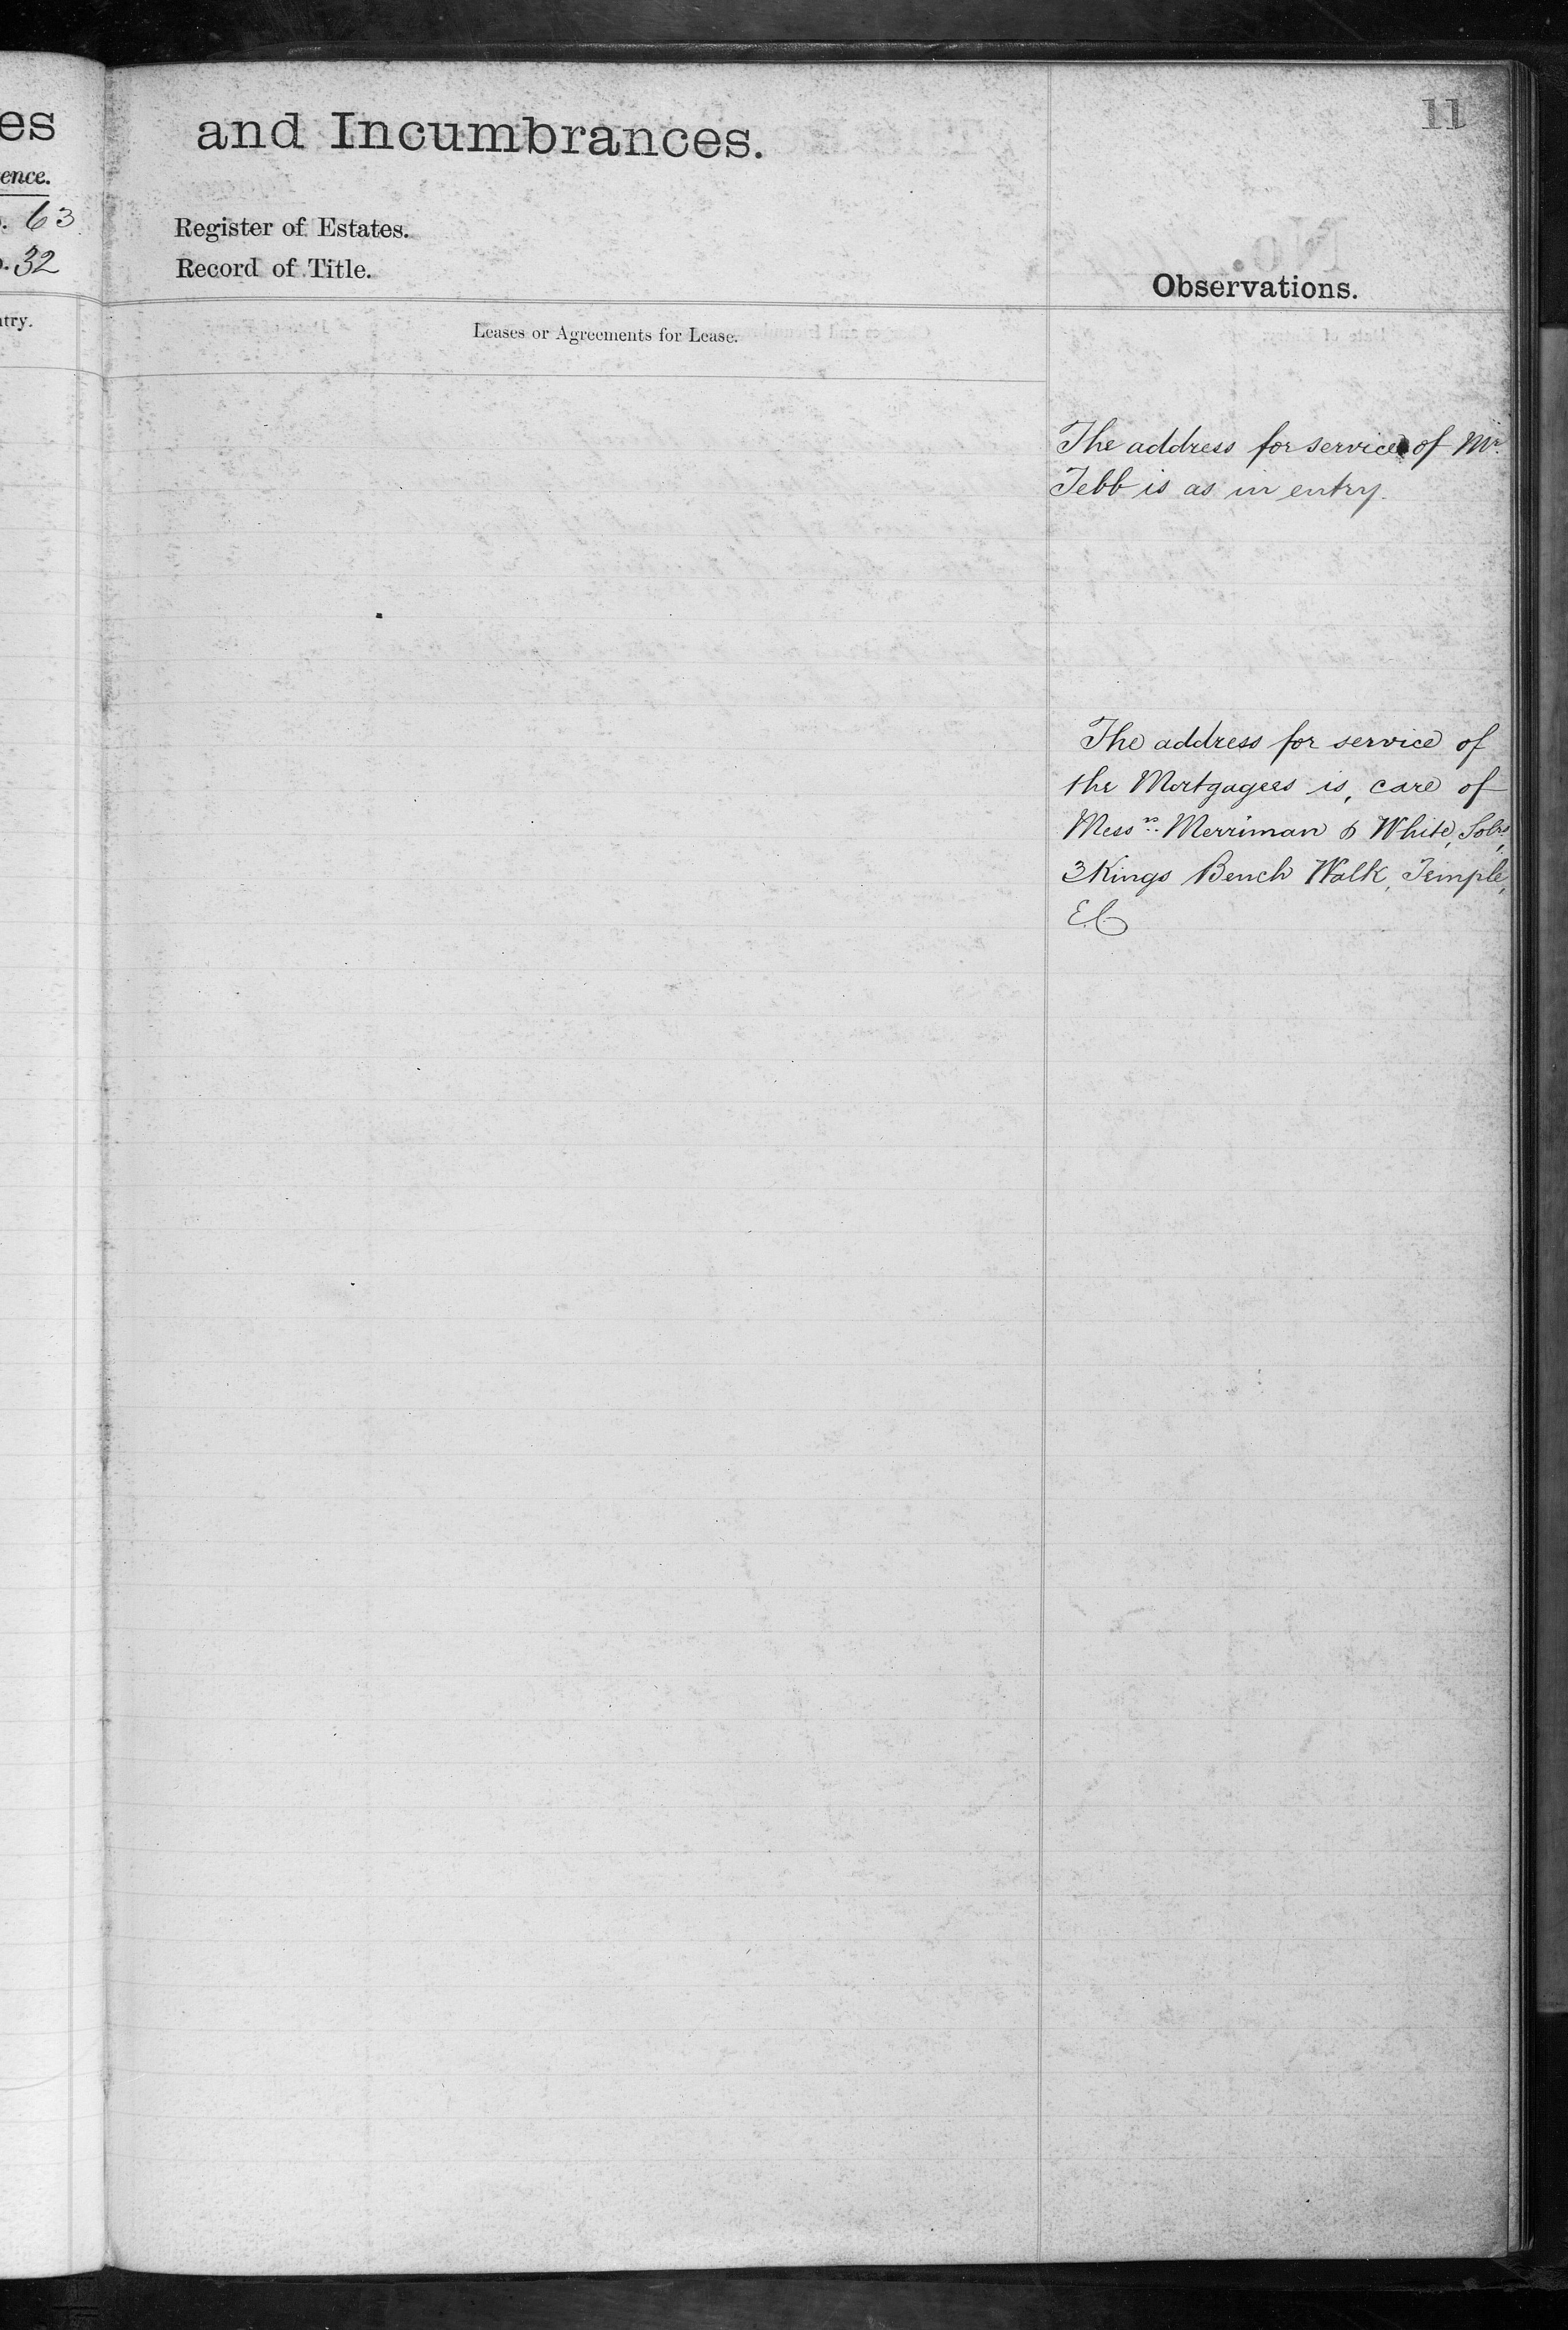 es
ence.
. 63
. 32
try.
11
and Incumbrances.
Register of Estates.
Record of Title.
Observations.
Leases or Agreements for Lease.
The address for service of Mr.
Tebb is as in entry.
The address for service of
the Mortgagees is, care of
Messrs. Merriman & White, Solrs,
3 Kings Bench Walk, Temple,
E.C